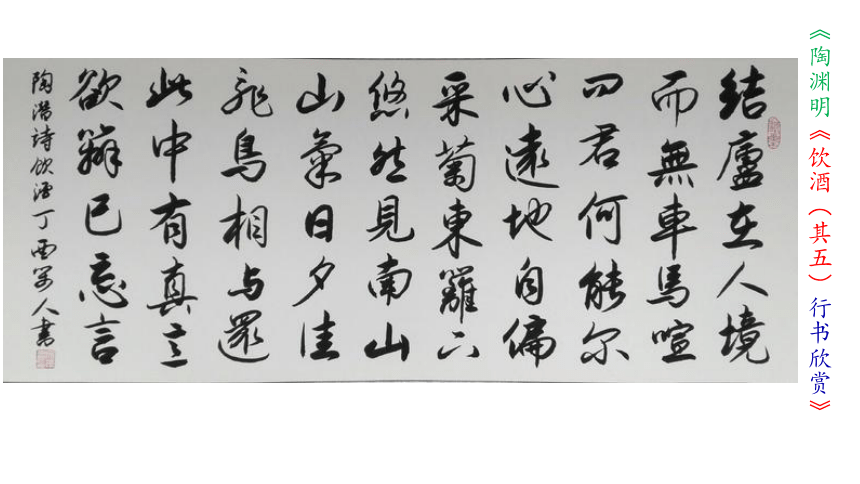 《陶渊明《饮酒（其五）行书欣赏》
結廬在人境
而無車馬喧
问君何能尔
心遠地自偏
采菊東籬下
悠然見南山
山氣日夕佳
飛鳥相与還
此中有真意
欲辨已忘言
陶潜詩飲酒丁酉人書